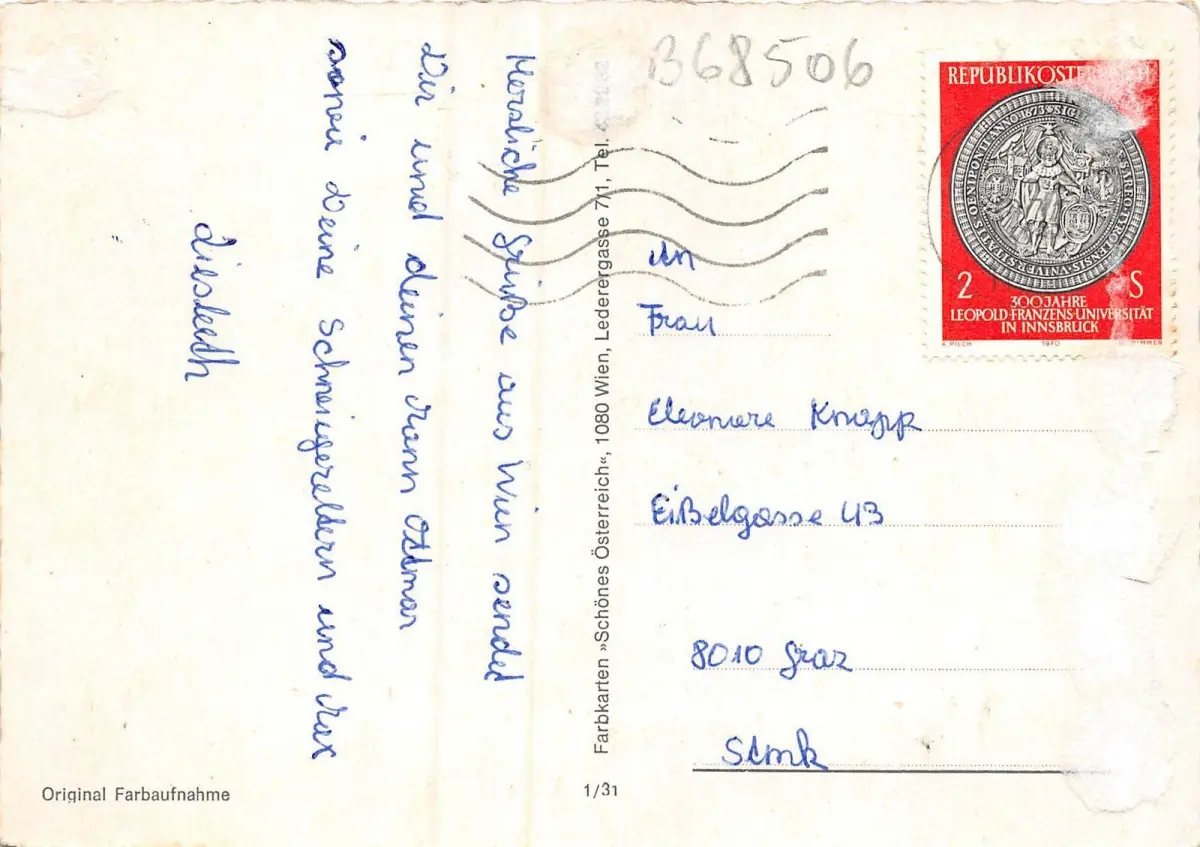 Herzliche Grüße aus Wien sendet
Dir und deinen Mann Ottmar
sowie Deine Schwiegereltern und Max
Lieslelth
Farbkarten »Schönes Österreich«, 1080 Wien, Lederergasse 7/1, Tel.
Original Farbaufnahme
1/31
B68506
REPUBLIK ÖSTERREICH
2 S
300 JAHRE
LEOPOLD-FRANZENS-UNIVERSITÄT
IN INNSBRUCK
A. PILCH 1970
An
Frau
Eleonore Knapp
Eißelgasse 43
8010 Graz
Stmk